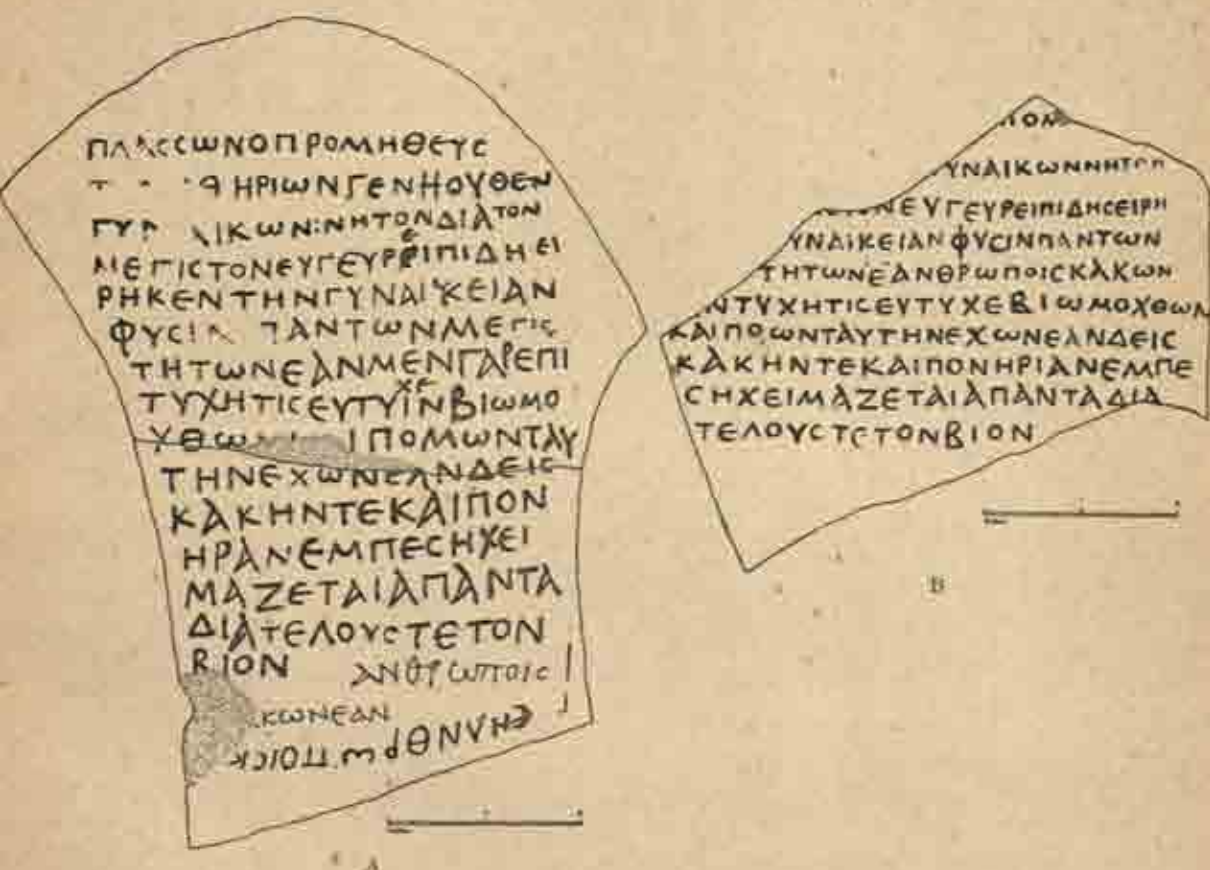 ΠΛΑϹϹΩΝΟΠΡΟΜΗΘΕΥϹ
ΗΡΙΩΝΓΕΝΗΟΥΘΕΝ
ΓΥΝΑΙΚΩΝ:ΝΗΤΟΝΔΙΑΤΟΝ
ΜΕΓΙϹΤΟΝΕΥΓΕΥΡΕΙΠΙΔΗΕΙ
ΡΗΚΕΝΤΗΝΓΥΝΑΙΚΕΙΑΝ
ΦΥϹΙΝΠΑΝΤΩΝΜΕΓΙϹ
ΤΗΤΩΝΕΑΝΜΕΝΓΑΡΕΠΙ
ΤΥΧΗΤΙϹΕΥΤΥΧΕΙΝΒΙΩΜΟ
ΧΘΩ ΙΠΟΜΩΝΤΑΥ
ΤΗΝΕΧΩΝΕΑΝΔΕΙϹ
ΚΑΚΗΝΤΕΚΑΙΠΟΝ
ΗΡΑΝΕΜΠΕϹΗΧΕΙ
ΜΑΖΕΤΑΙΑΠΑΝΤΑ
ΔΙΑΤΕΛΟΥϹΤΕΤΟΝ
ΒΙΟΝ ΑΝΘΡΩΠΟΙϹ
ΚΩΝΕΑΝ
ΕΗΑΝΘΡΩΠΟΙϹΚ
A
ΠΟΝ
ΥΝΑΙΚΩΝΝΗΤΟΠ
ΟΝΕΥΓΕΥΡΕΙΠΙΔΗϹΕΙΡΗ
ΥΝΑΙΚΕΙΑΝΦΥϹΙΝΠΑΝΤΩΝ
ΤΗΤΩΝΕΑΝΘΡΩΠΟΙϹΚΑΚΩΝ
ΝΤΥΧΗΤΙϹΕΥΤΥΧΕΒΙΩΜΟΧΘΩΝ
ΚΑΙΠΟΩΝΤΑΥΤΗΝΕΧΩΝΕΑΝΔΕΙϹ
ΚΑΚΗΝΤΕΚΑΙΠΟΝΗΡΙΑΝΕΜΠΕ
ϹΗΧΕΙΜΑΖΕΤΑΙΑΠΑΝΤΑΔΙΑ
ΤΕΛΟΥϹΤΕΤΟΝΒΙΟΝ
B